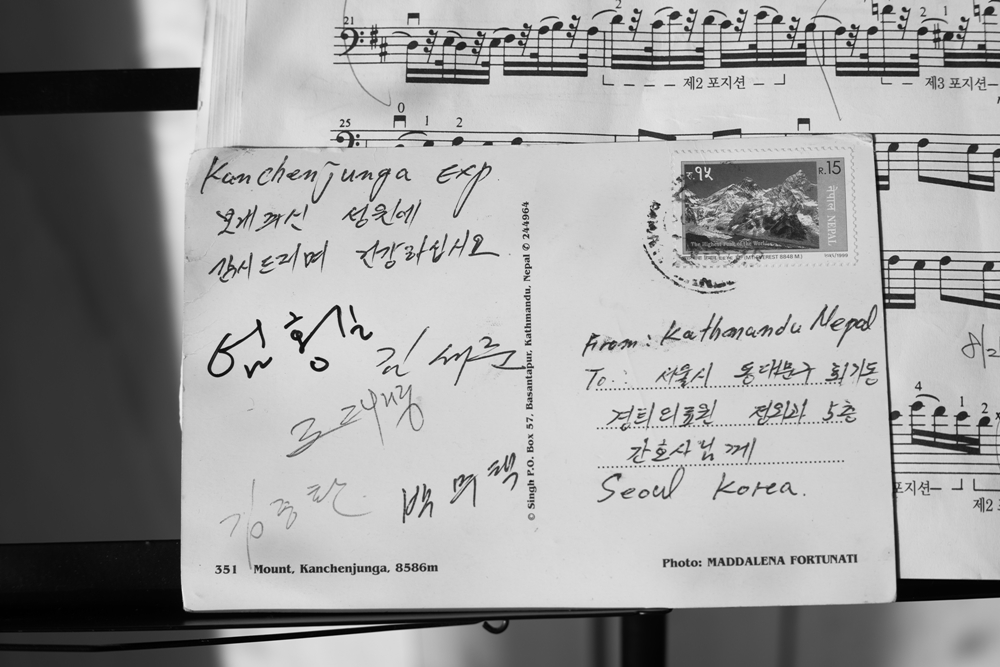 21
2
2 1
제2 포지션
제3 포지션
25
0
1 2
Kanchenjunga Exp.
보내주신 성원에
감사드리며 건강하십시오
엄홍길
김
백
351 Mount, Kanchenjunga, 8586m
© Singh P.O. Box 57, Basantapur, Kathmandu, Nepal ✆ 244964
रु.१५ R.15
नेपाल NEPAL
The Highest Peak of the World
(MT. EVEREST 8848 M)
1999
From: Kathmandu Nepal
To: 서울시 동대문구 회기동
경희의료원 정외과 5층
간호사님께
Seoul Korea.
Photo: MADDALENA FORTUNATI
4
1 2
포지션
제2